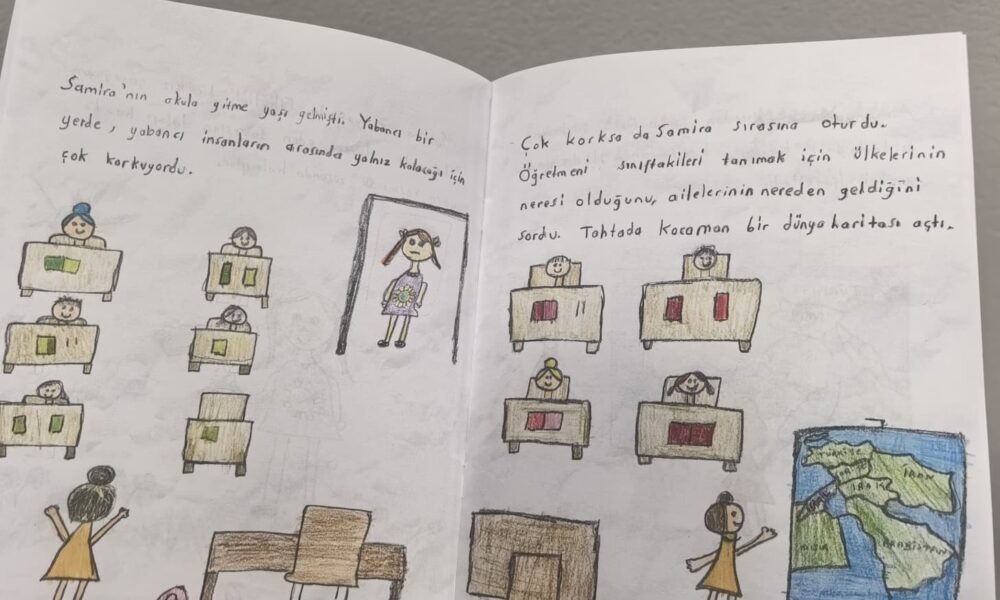 Samira'nın okula gitme yaşı gelmişti. Yabancı bir
yerde, yabancı insanların arasında yalnız kalacağı için
çok korkuyordu.
Çok korksa da Samira sırasına oturdu.
Öğretmeni sınıftakileri tanımak için ülkelerinin
neresi olduğunu, ailelerinin nereden geldiğini
sordu. Tahtada kocaman bir dünya haritası açtı.
TÜRKİYE
İRAN
IRAK
ARABİSTAN